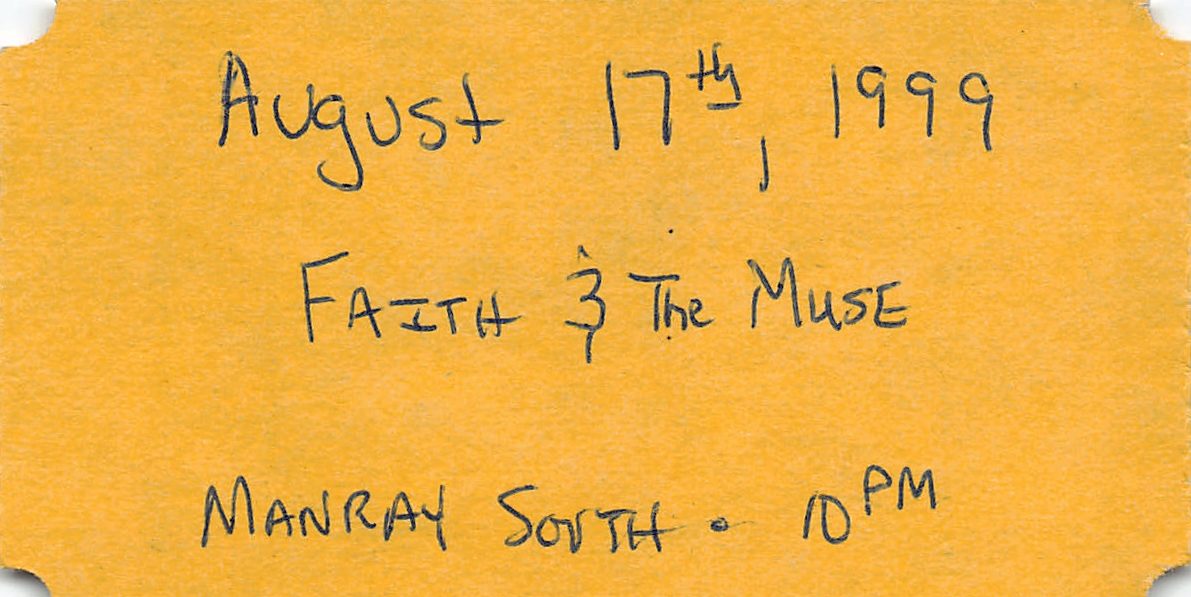 August 17th, 1999
FAITH & The MUSE
MANRAY SOUTH • 10 PM